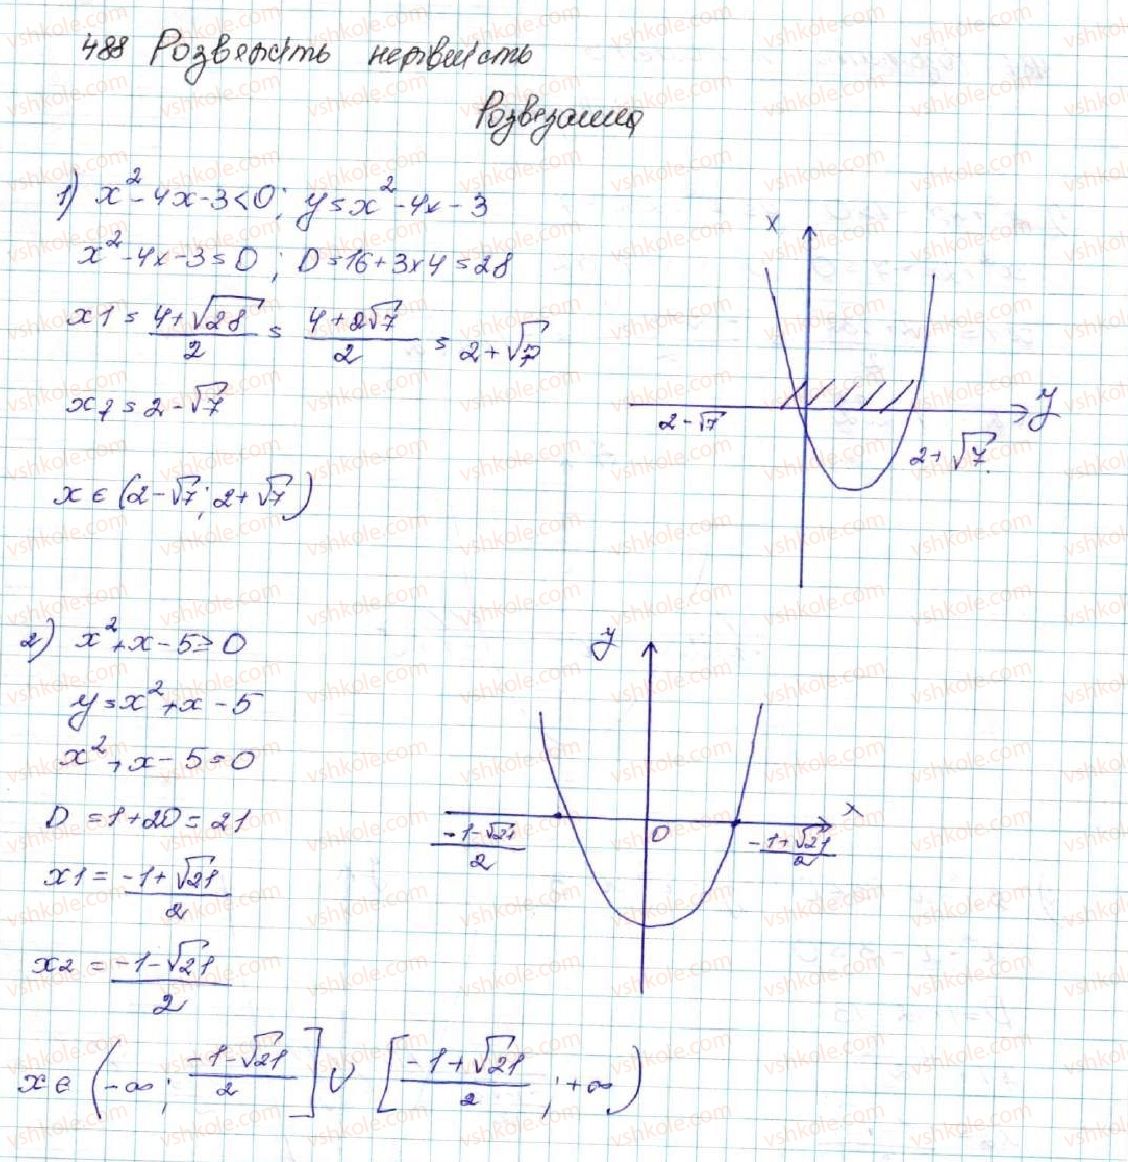 488 Розв'яжіть нерівність
Розв'язання
1) x² - 4x - 3 < 0; y = x² - 4x - 3
x² - 4x - 3 = 0; D = 16 + 3x4 = 28
x1 = (4 + √28)/2 = (4 + 2√7)/2 = 2 + √7
x2 = 2 - √7
x ∈ (2 - √7; 2 + √7)
x
y
2 - √7
2 + √7
2) x² + x - 5 ≥ 0
y = x² + x - 5
x² + x - 5 = 0
D = 1 + 20 = 21
x1 = (-1 + √21)/2
x2 = (-1 - √21)/2
x ∈ (-∞; (-1 - √21)/2] ∪ [(-1 + √21)/2; +∞)
y
x
(-1 - √21)/2
0
(-1 + √21)/2
vshkole.com